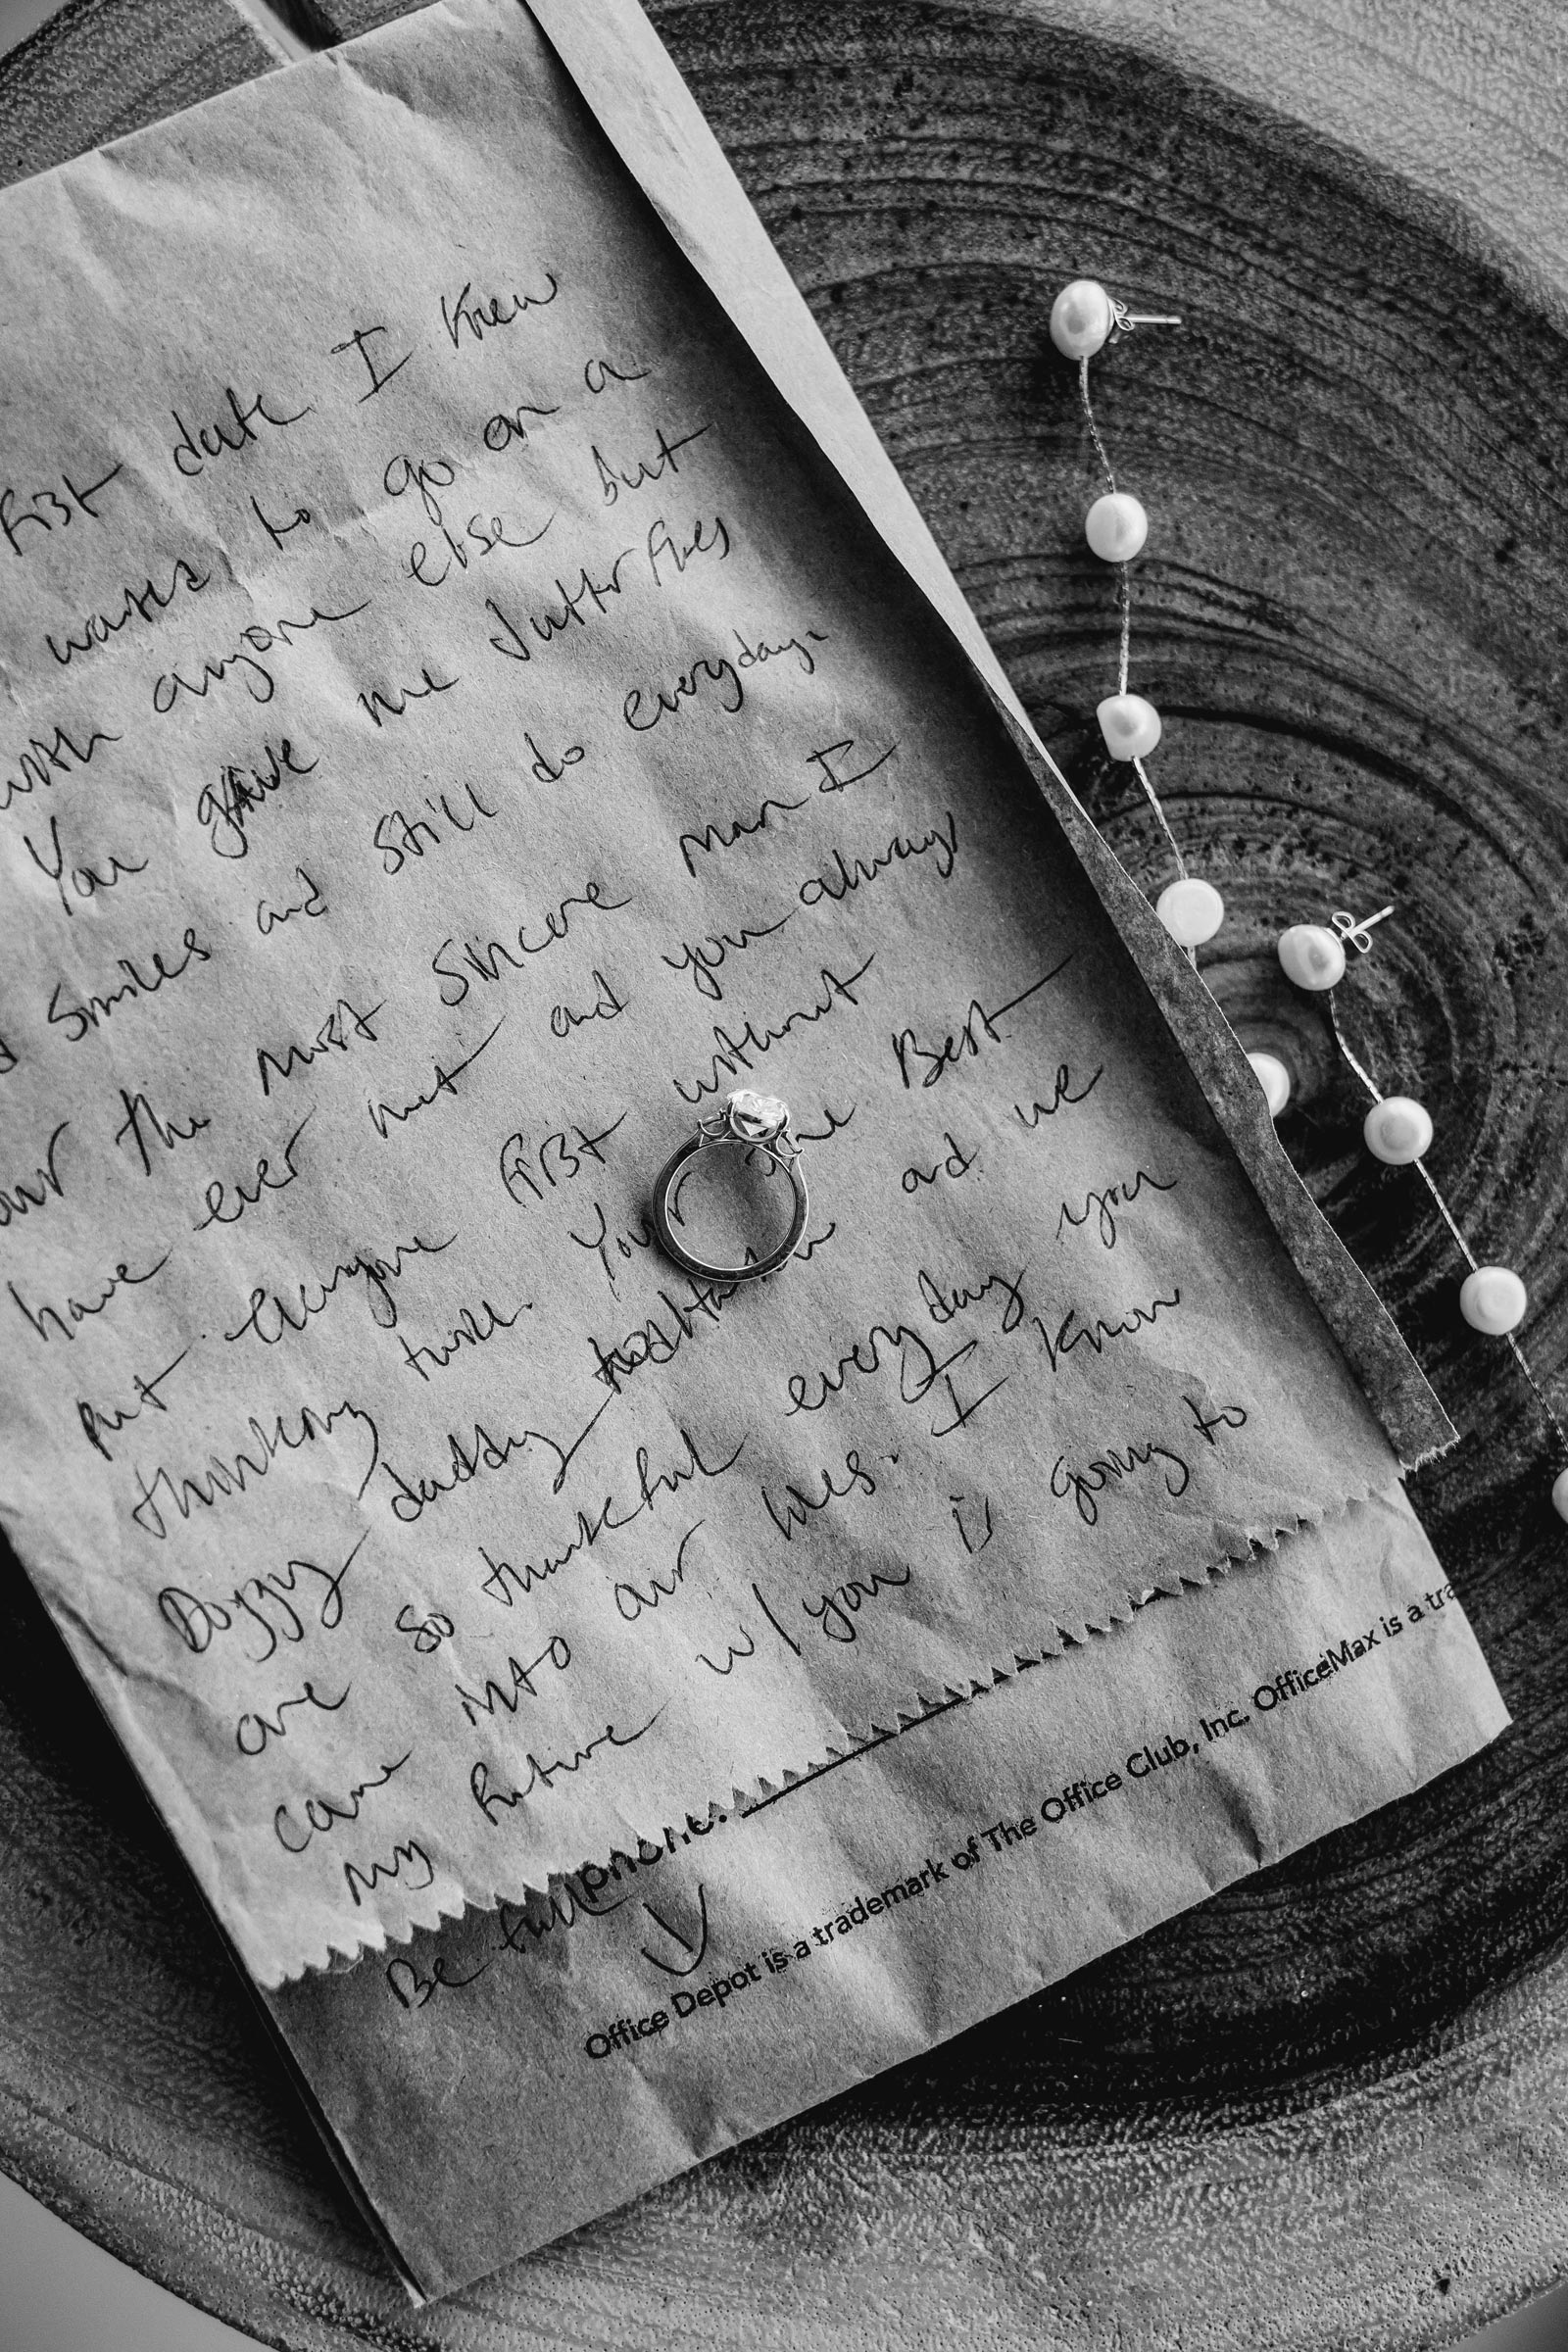 first date I knew
wanted to go on a
with anyone else but
You gave me butterflies
smiles and still do everyday.
our the most sincere man I
have ever met and you always
put everyone first without
thinking twice. Your the Best
Doggy daddy and we
are so thankful every day you
came into our lives. I know
my future w/ you is going to
Be full
phone.
Office Depot is a trademark of The Office Club, Inc. OfficeMax is a tra